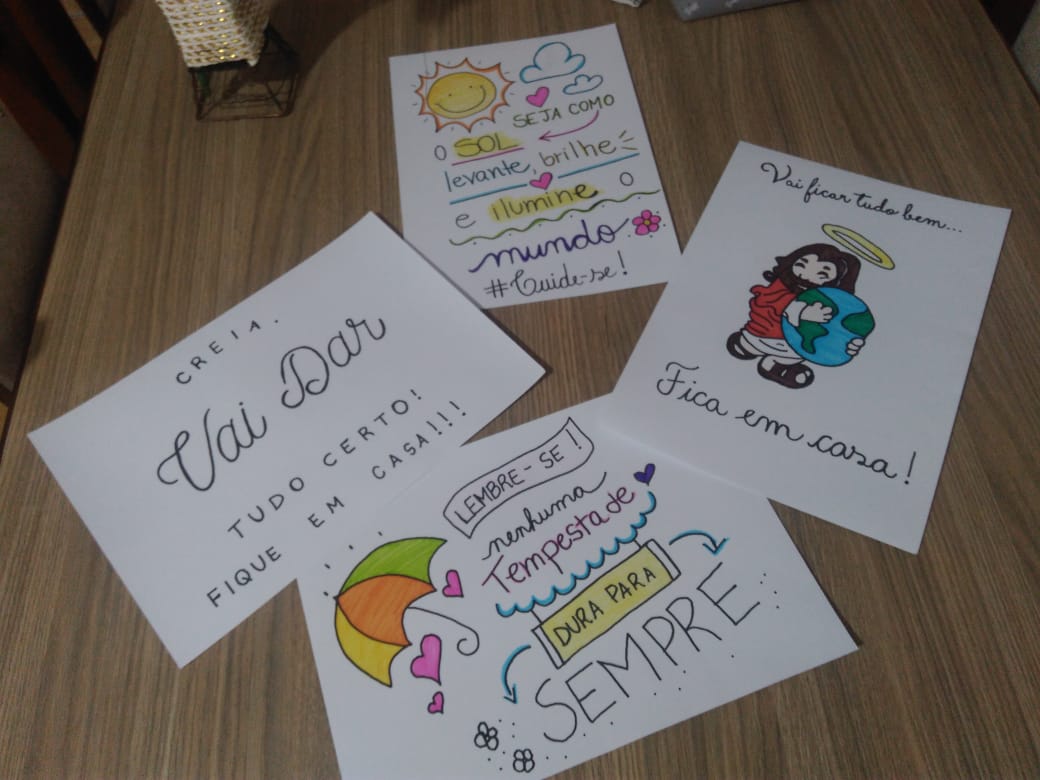 SEJA COMO
O SOL
levante, brilhe
e ilumine o
mundo
#Cuide-se!
Vai ficar tudo bem...
Fica em casa!
CREIA.
Vai Dar
TUDO CERTO!
FIQUE EM CASA!!!
LEMBRE-SE!
nenhuma
Tempestade
DURA PARA
SEMPRE